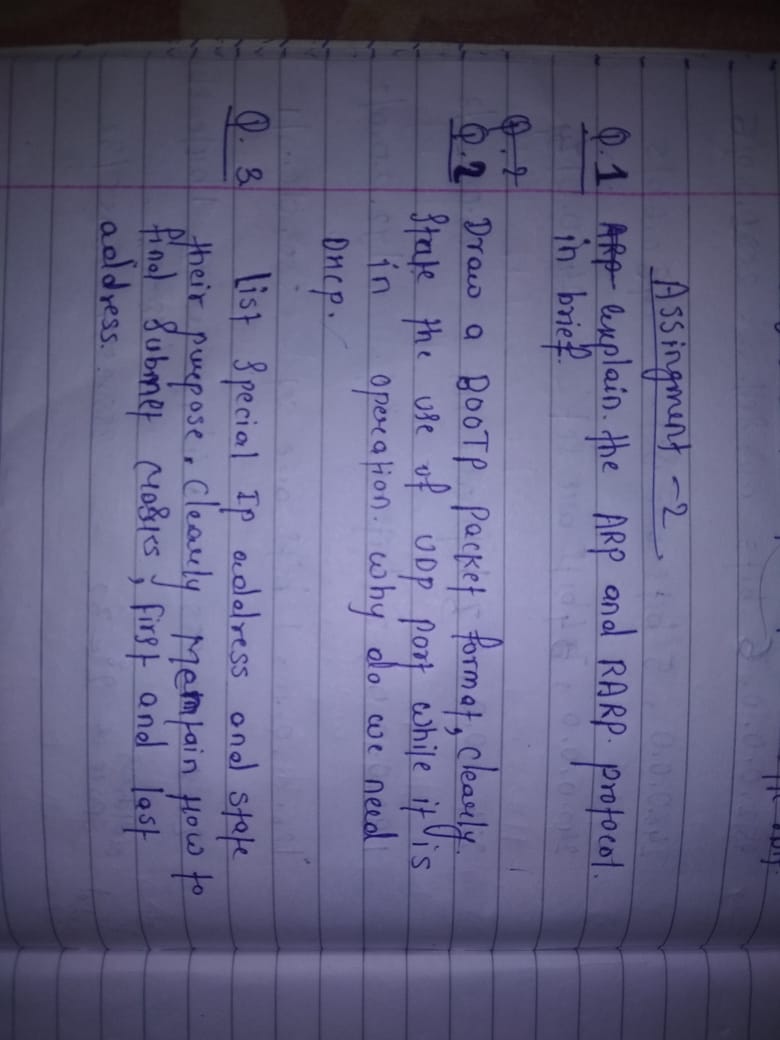 Assingment - 2
Q.1 ARP explain the ARP and RARP. protocol.
in brief.
Q.2
Q.2 Draw a BOOTP Packet format, clearly.
State the use of UDP port while it is
in operation. why do we need
DHCP.
Q.3 List special Ip address and state
their purpose. Clearly Mentain How to
find Submet Maskes, first and last
address.